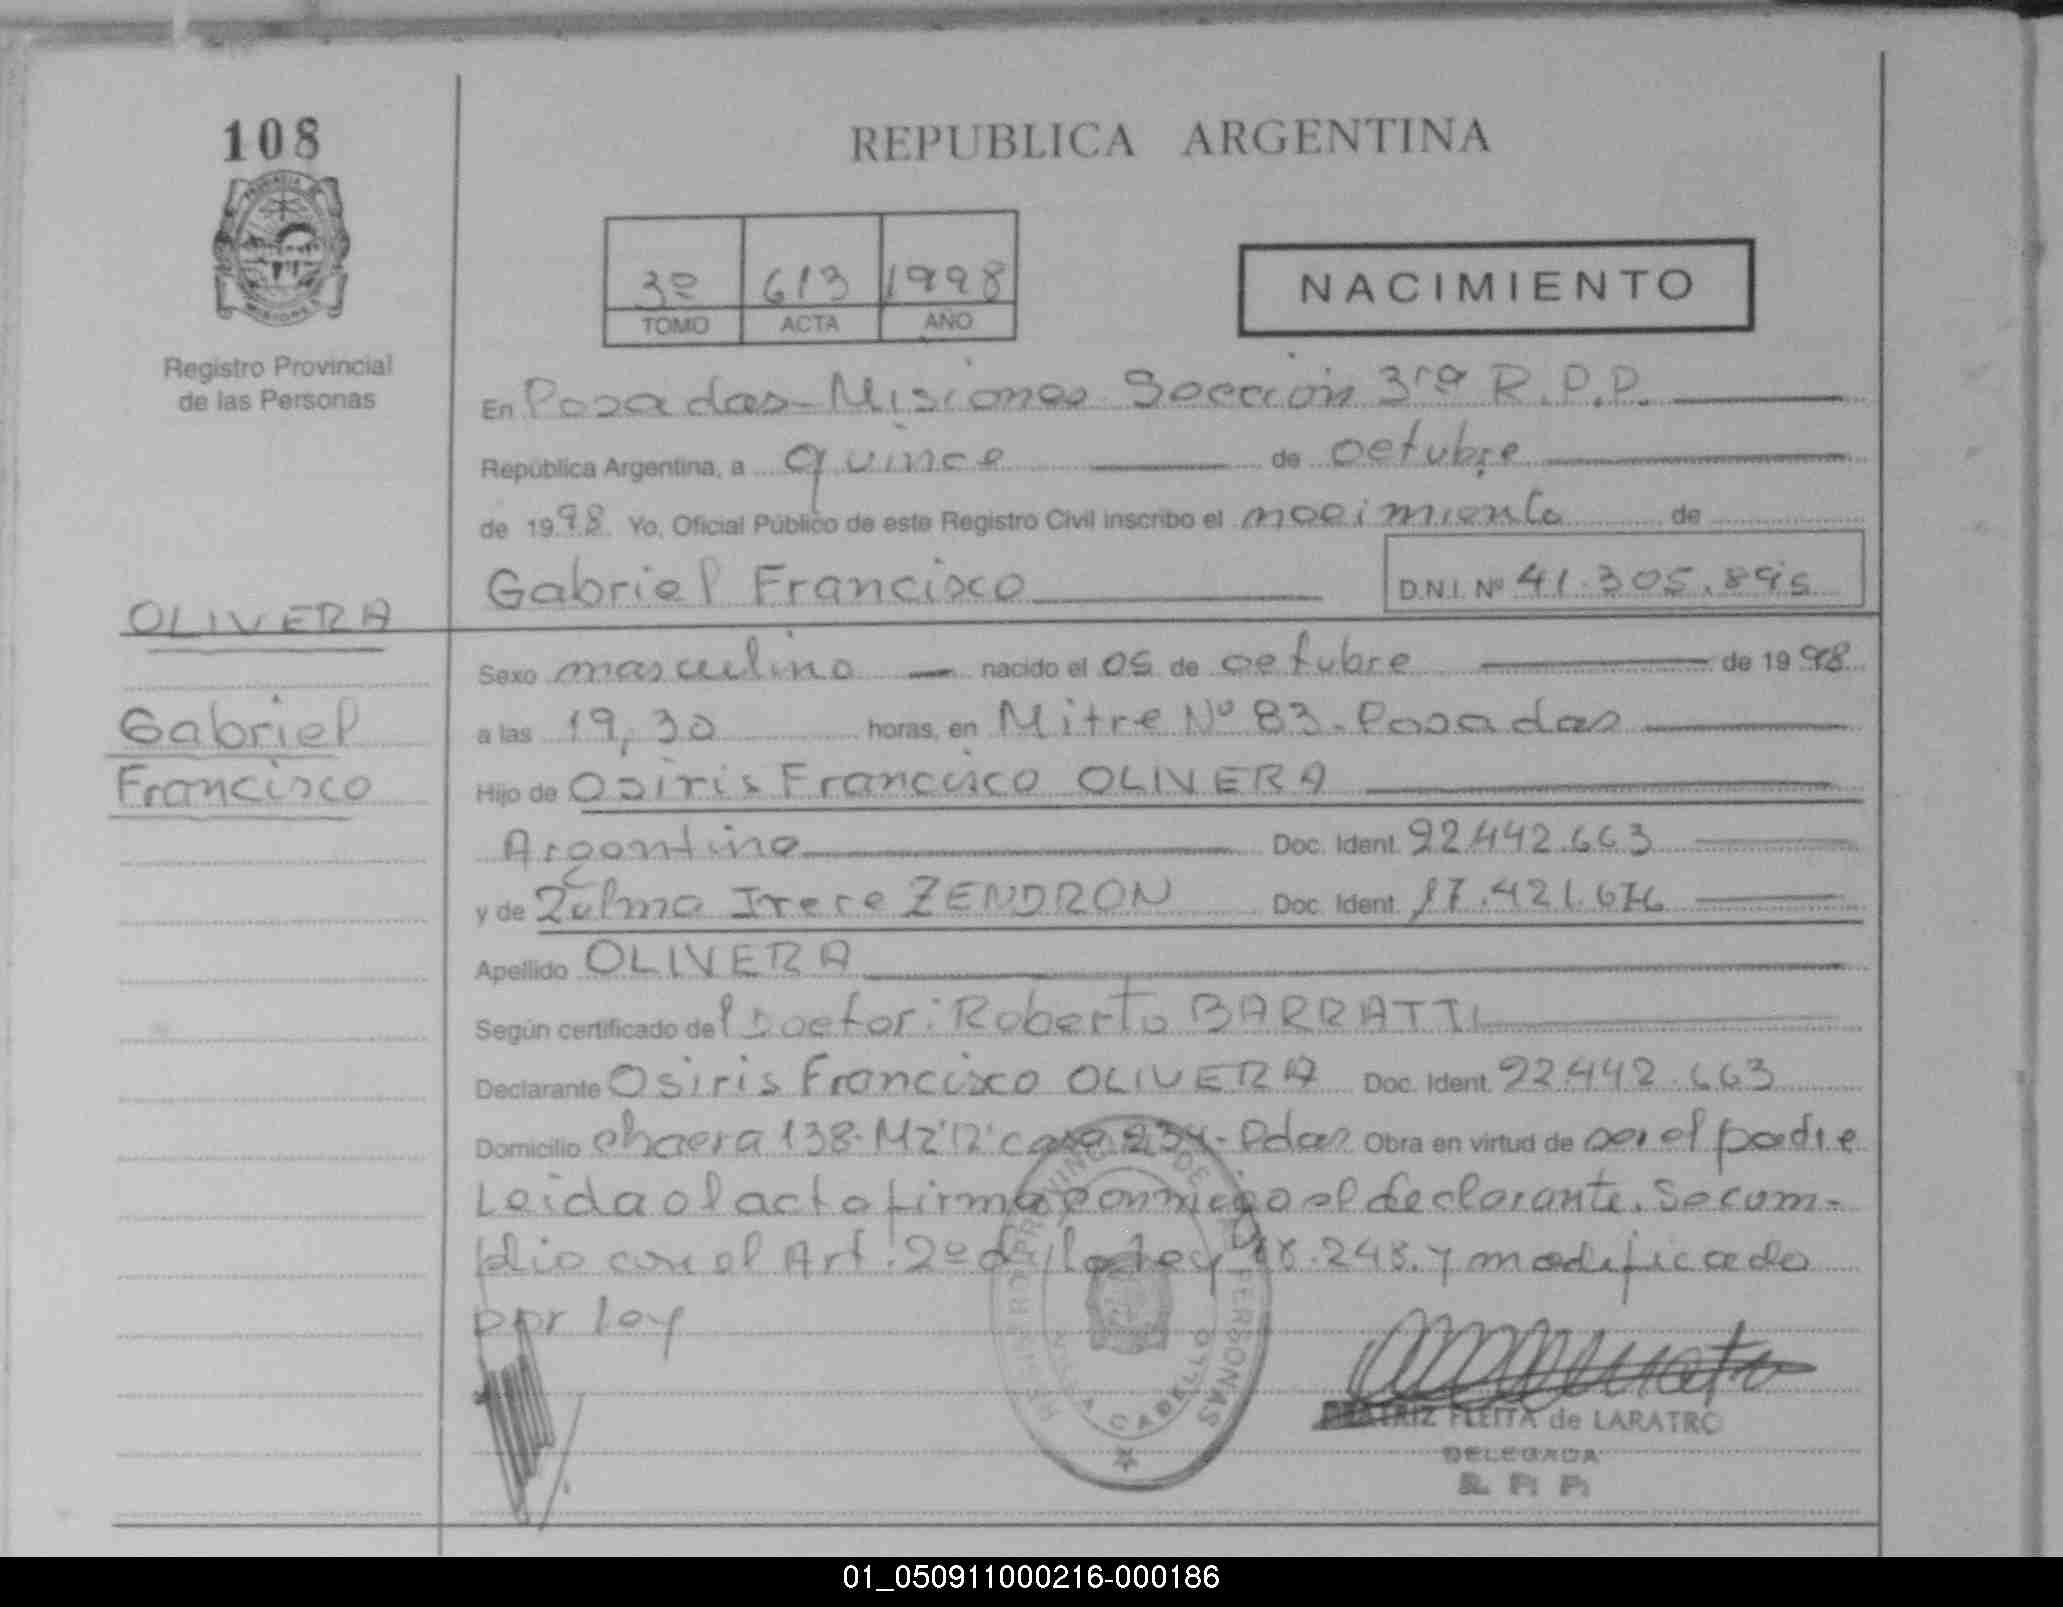 108
REPUBLICA ARGENTINA
3º 613 1998
TOMO ACTA AÑO
NACIMIENTO
Registro Provincial
de las Personas
En Posadas-Misiones Sección 3ra R.P.P.
República Argentina, a quince de octubre
de 1998 Yo, Oficial Público de este Registro Civil inscribo el nacimiento de
Gabriel Francisco D.N.I. Nº 41.305.895
OLIVERA
Gabriel
Francisco
Sexo masculino nacido el 05 de octubre de 1998
a las 19,30 horas, en Mitre Nº 83-Posadas
Hijo de Osiris Francisco OLIVERA
Argentino Doc. Ident. 22.442.663
y de Zulma Irene ZENDRON Doc. Ident. 17.421.676
Apellido OLIVERA
Según certificado del Doctor: Roberto BARRATTI
Declarante Osiris Francisco OLIVERA Doc. Ident. 22.442.663
Domicilio chacra 138- Mz casa 234- Pdas Obra en virtud de ser el padre
Leida el acta firma conmigo el declarante. Se cum-
plio con el Art. 2º de la Ley 18.248. y modificado
por ley
REGISTRO PROVINCIAL DE LAS PERSONAS
VILLA CABELLO
BEATRIZ FLEITA de LARATRO
DELEGADA
R. P. P.
01_050911000216-000186